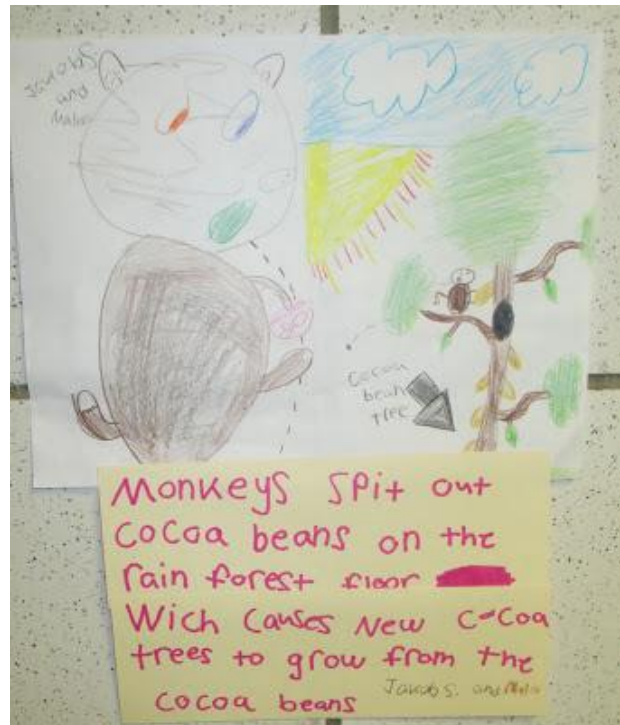 Jacob S.
and
Malia
cocoa
bean
tree
Monkeys spit out
cocoa beans on the
rain forest floor
Wich causes New cocoa
trees to grow from the
cocoa beans
Jacob S. and Malia